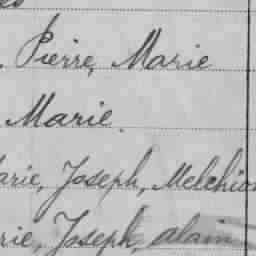 Pierre, Marie
Marie.
arie, Joseph, Melchior
rie, Joseph, alain